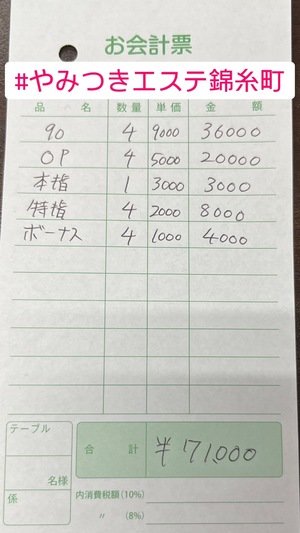 お会計票
#やみつきエステ錦糸町
品 名 数量 単価 金 額
90 4 9000 36000
OP 4 5000 20000
本指 1 3000 3000
特指 4 2000 8000
ボーナス 4 1000 4000
テーブル
名様
係
合 計 ¥71,000
内消費税額(10%)
〃 (8%)